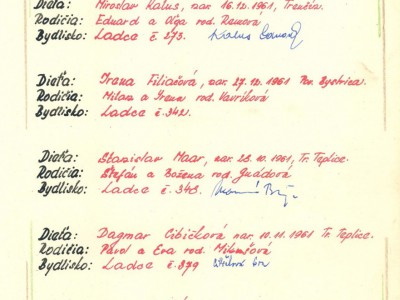 Dieťa: Miroslav Kalus, nar. 16. 12. 1961, Trenčín.
Rodičia: Eduard a Oľga rod.
Bydlisko: Ladce č. 273. Kalus
Dieťa: Irena Filiačová, nar. 27. 12. 1961 Pov. Bystrica.
Rodičia: Milan a Irena rod. Vavríková
Bydlisko: Ladce č. 342.
Dieťa: Stanislav Maar, nar. 28. 10. 1961, Tr. Teplice.
Rodičia: Štefán a Božena rod. Gádová
Bydlisko: Ladce č. 343.
Dieťa: Dagmar Cibičková nar. 10. 11. 1961 Tr. Teplice.
Rodičia: Pavol a Eva rod.
Bydlisko: Ladce č. 379